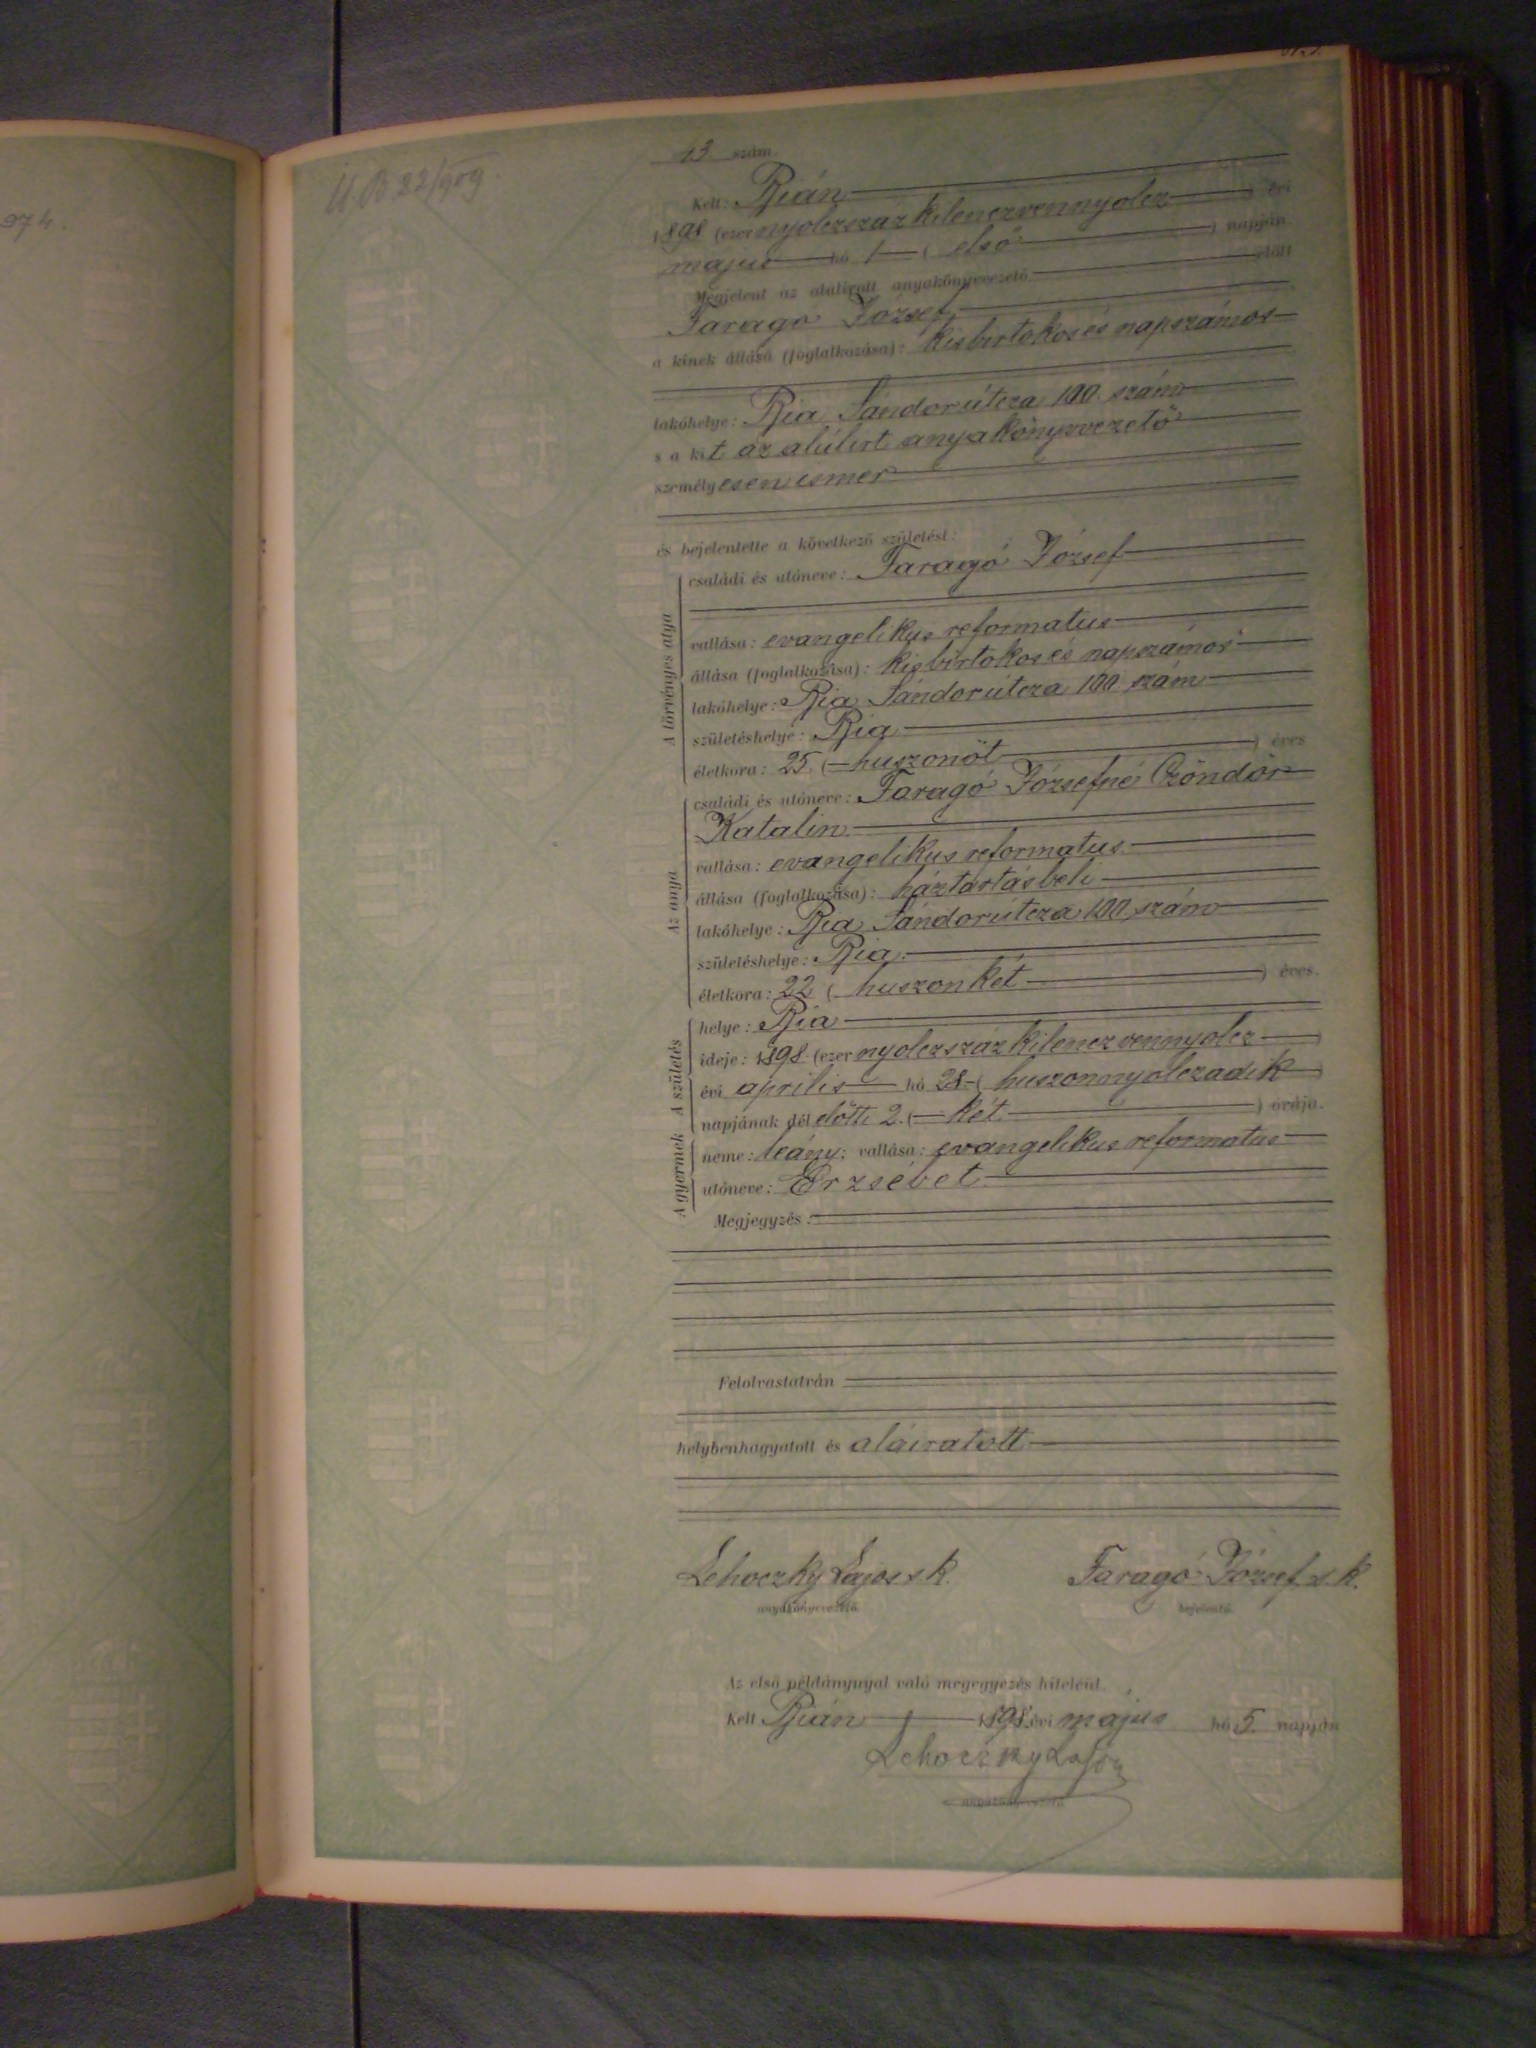 974.
Ü. B 22/909.
13 szám.
Kelt: Bián
1898 (ezer nyolczszáz kilenczvennyolcz ) évi
május hó 1 ( első ) napján
Megjelent az alulirott anyakönyvvezető előtt
Faragó József,
a kinek állása (foglalkozása): kisbirtokos és napszámos
lakóhelye: Bia Sándorútcza 100. szám
s a kit az alúlirt anyakönyvvezető
személyesen ismer
és bejelentette a következő születést:
A törvényes atya
családi és utóneve: Faragó József
vallása: evangelikus reformatus
állása (foglalkozása): kisbirtokos és napszámos
lakóhelye: Bia Sándorútcza 100 szám
születéshelye: Bia
életkora: 25 ( huszonöt ) éves
Az anya
családi és utóneve: Faragó Józsefné Czöndör
Katalin
vallása: evangelikus reformatus.
állása (foglalkozása): háztartásbeli
lakóhelye: Bia Sándorútcza 100 szám
születéshelye: Bia.
életkora: 22 ( huszonkét ) éves.
A születés
helye: Bia
ideje: 1898. (ezer nyolczszáz kilenczvennyolcz )
évi április hó 28 ( huszonnyolczadik )
napjának dél előtti 2. ( két ) órája.
A gyermek
neme: leány; vallása: evangelikus reformatus
utóneve: Erzsébet
Megjegyzés:
Felolvastatván
helybenhagyatott és aláiratott
Lehoczky Lajos s k. Faragó József s. k.
anyakönyvvezető. bejelentő.
Az első példánynyal való megegyezés hiteléül.
Kelt Bián 1898. évi május hó 5. napján
Lehoczky Lajos
anyakönyvvezető